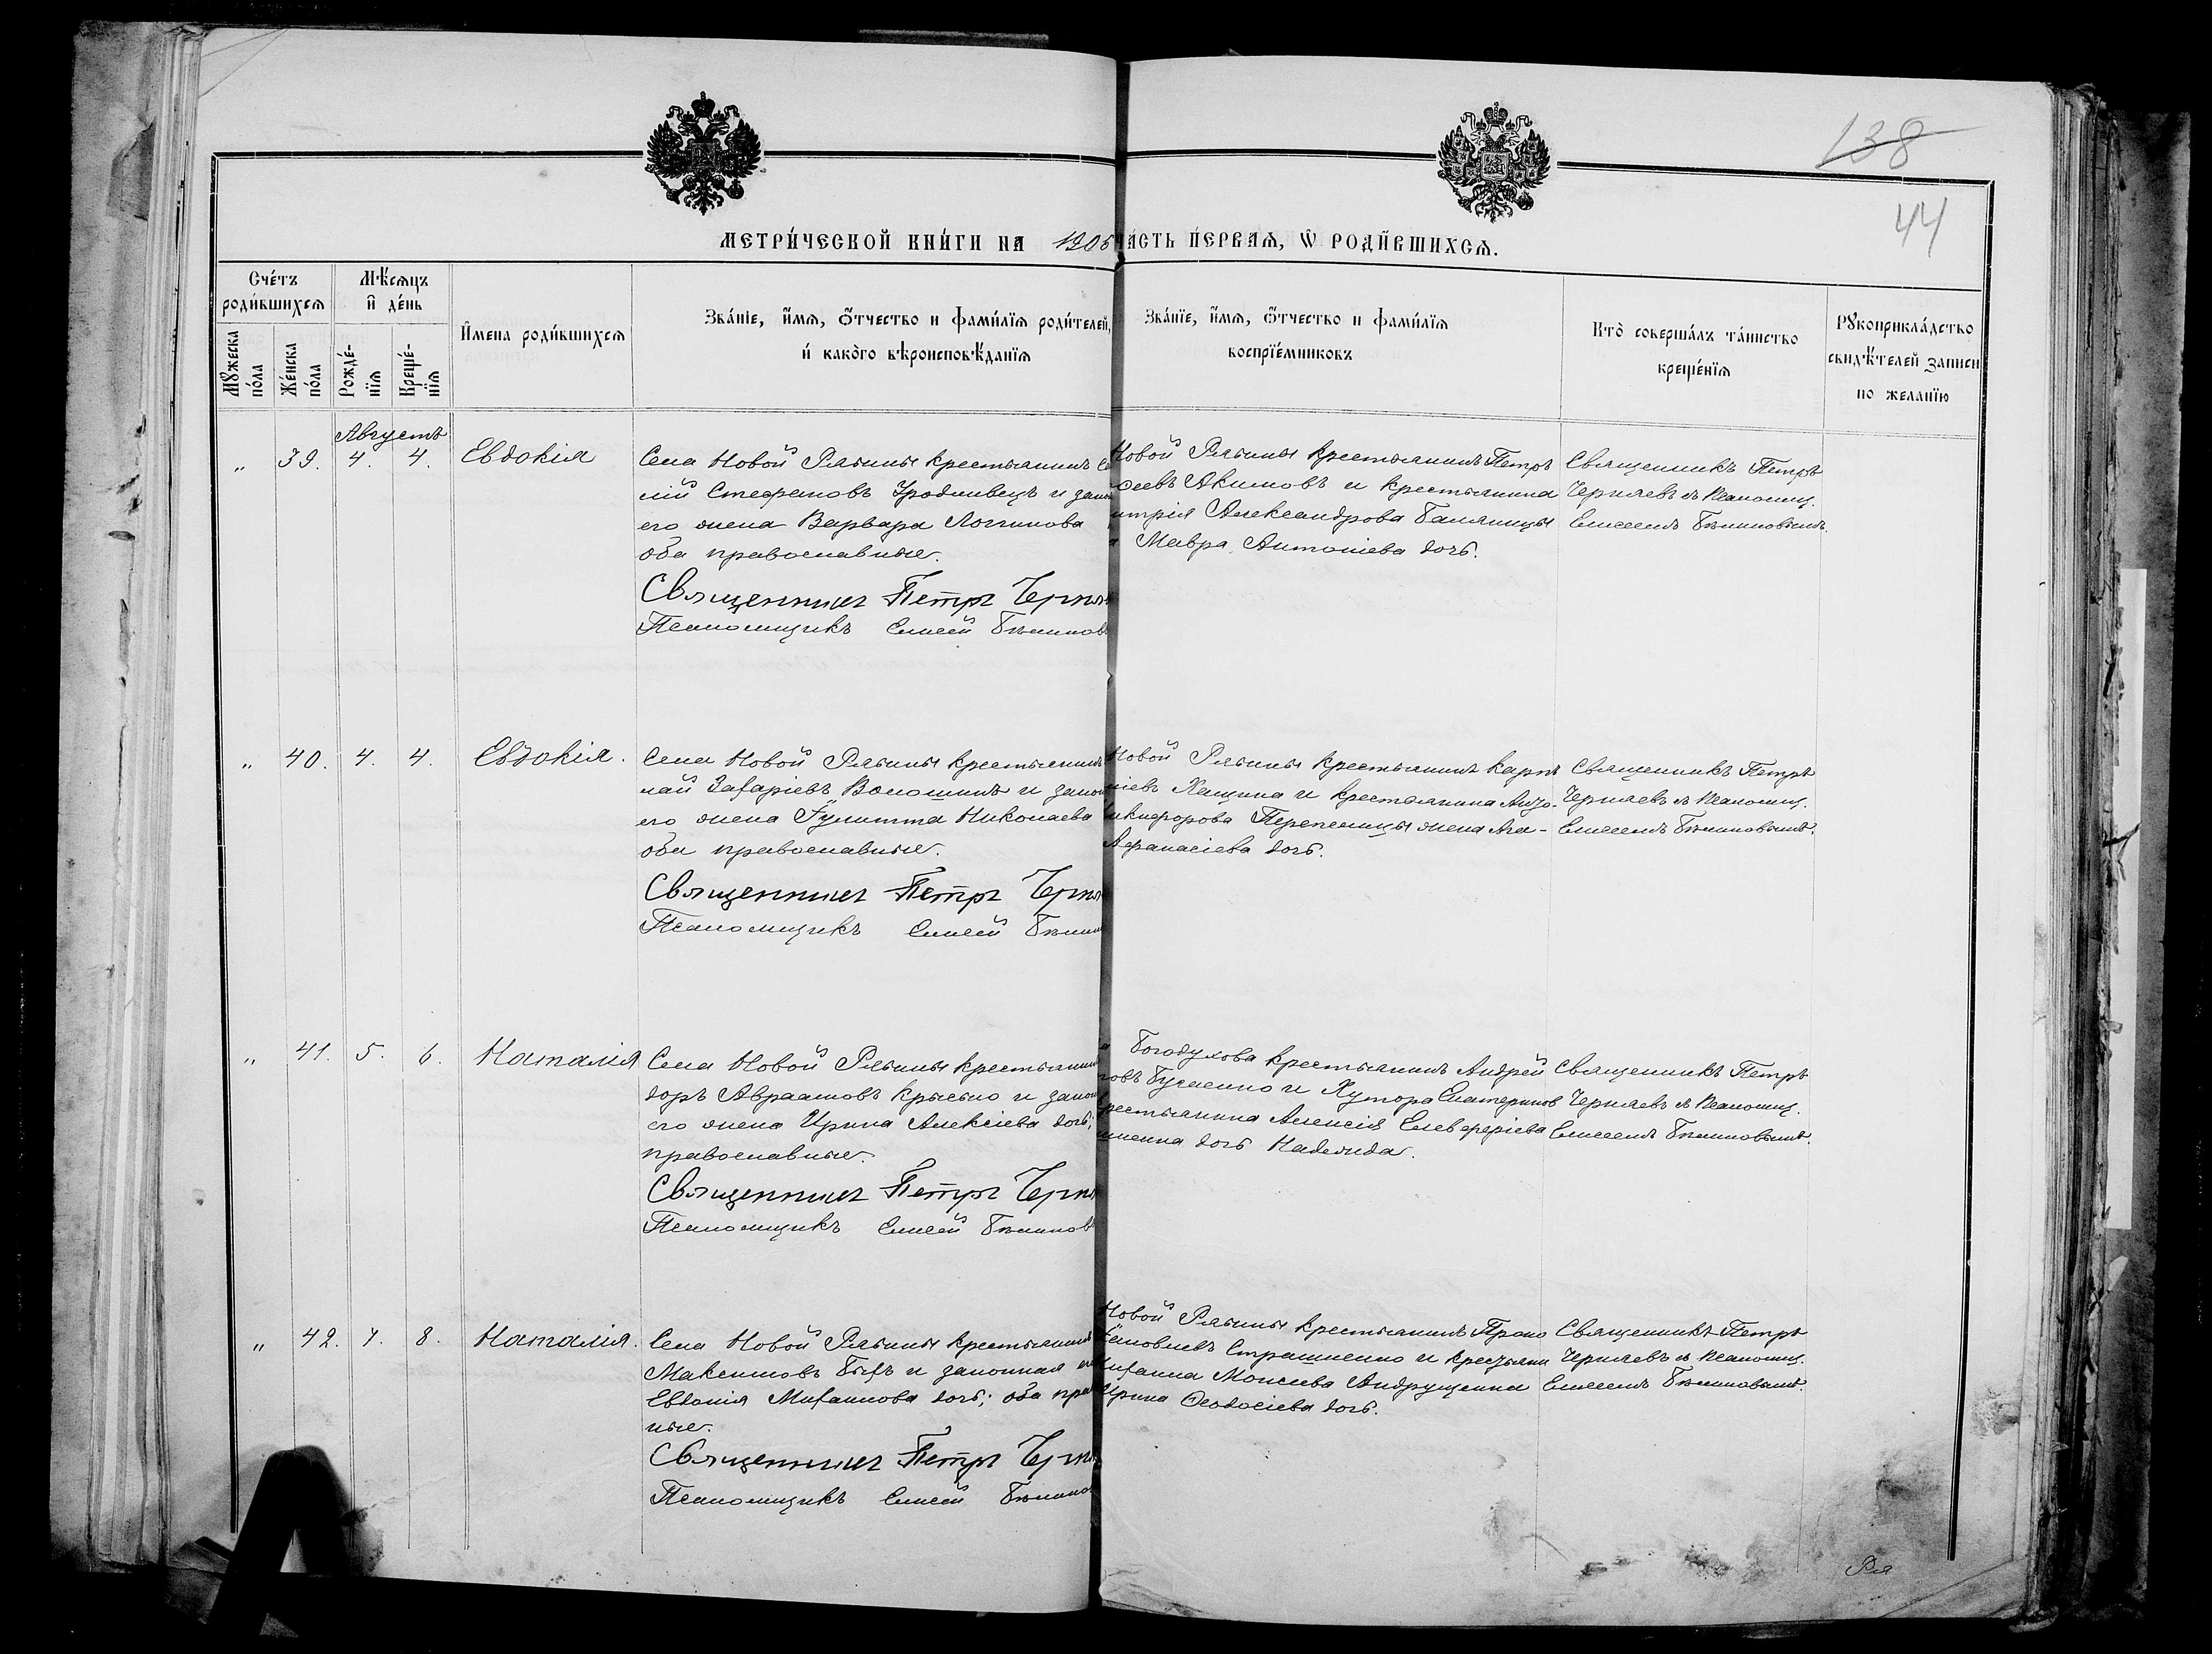 138
44
МЕТРИ́ЧЕСКОЙ КНИ́ГИ НА 1906 ЧА́СТЬ ПЕ́РВАѦ, Ѡ҆ РОДИ́ВШИХСѦ.
Сче́тъ роди́вшихсѧ
Мѣ́сѧцъ и҆ де́нь
И҆мена роди́вшихсѧ
Зва́нїе, и҆́мѧ, ѻ҆́тчество и фами́лїѧ роди́телей,
и҆ како́гѡ вѣроисповѣ́данїѧ
Зва́нїе, и҆́мѧ, ѻ҆́тчество и фами́лїѧ
воспрїе́мниковъ
Кто̀ соверша́лъ та́инство
креще́нїѧ
Рꙋкоприкла́дство
свидѣ́телей записи
по желанїю
Мꙋ́жеска по́ла
Же́нска по́ла
Рожде́нїѧ
Креще́нїѧ
Августъ
„ 39. 4. 4. Евдокія
Села Новой Рябины крестьянинъ
лій Стефановъ Уродливецъ и закон
его жена Варвара Логгинова
оба православные.
Священникъ Петръ Черня
Псаломщикъ Елисей Бѣлиновъ
Новой Рябины крестьянинъ Петръ
сеевъ Акимовъ и крестьянина
итрія Александрова Паляницы
Мавра Антоніева дочь.
Священникъ Петръ
Черняевъ съ псаломщ.
Елисеемъ Бѣлиновымъ.
„ 40. 4. 4. Евдокія.
Села Новой Рябины крестьянинъ
лай Захаріевъ Волошинъ и закон
его жена Іулитта Николаева
оба православные.
Священникъ Петръ Черня
Псаломщикъ Елисей Бѣлин
Новой Рябины крестьянинъ Карпъ
ніевъ Хащина и крестьянина
Никифорова Перепелицы жена Ага-
Аѳанасіева дочь.
Священникъ Петръ
Черняевъ съ псаломщ.
Елисеемъ Бѣлиновымъ.
„ 41. 5. 6. Наталія
Села Новой Рябины крестьянин
доръ Авраамовъ Крысько и закон
его жена Ирина Алексіева дочь;
православные.
Священникъ Петръ Черня
Псаломщикъ Елисей Бѣлиновъ
Богодухова крестьянинъ Андрей
новъ и Хутора Екатеринов
крестьянина Алексія Елевѳеріева
дочь Надежда.
Священникъ Петръ
Черняевъ съ псаломщ.
Елисеемъ Бѣлиновымъ.
„ 42. 7. 8. Наталія.
Села Новой Рябины крестьянинъ
Максимовъ Быхъ и законная его
Евдокія Михаилова дочь; оба прав
ные.
Священникъ Петръ Черн
Псаломщикъ Елисей Бѣлино
Новой Рябины крестьянинъ Проко
Іаковлевъ Страшненко и крестьяни
Михаила Моисеева Андрущенка
Ирина Ѳеодосіева дочь.
Священникъ Петръ
Черняевъ съ псаломщ.
Елисеемъ Бѣлиновымъ.
Ря